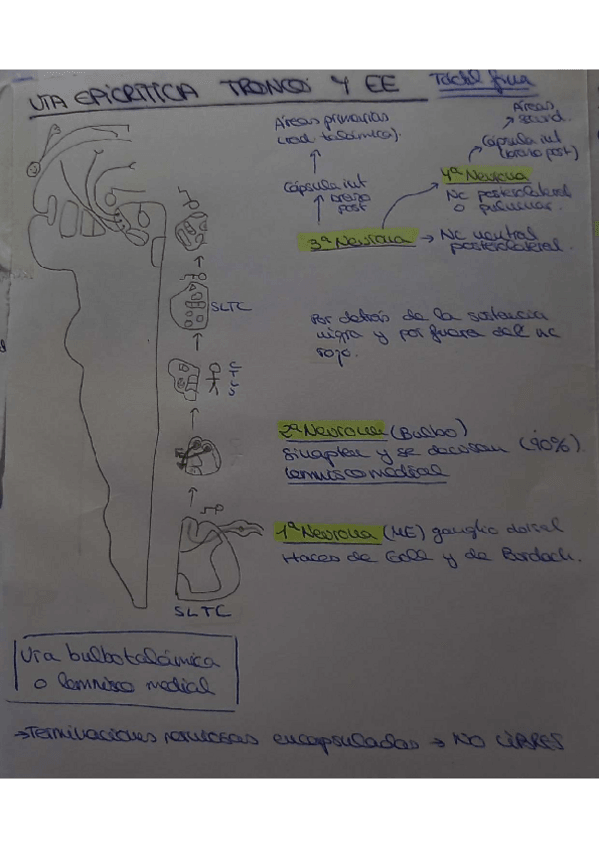 VIA EPICRITICA TRONCO Y EE Táctil fina
Áreas primarias
(rad. talámica).
Cápsula int
brazo
post
3ª Neurona → Nc ventral
posterolateral.
Áreas
secund.
Cápsula int
(brazo post)
4ª Neurona
Nc posterolateral
o pulvinar.
SLTC
Por detrás de la sustancia
nigra y por fuera del nc
rojo.
C
T
L
S
2ª Neurona (Bulbo)
Sinaptan y se decusan (90%).
Lemnisco medial
1ª Neurona (ME) ganglio dorsal
Haces de Goll y de Burdach.
SLTC
Vía bulbotalámica
o lemnisco medial
→Terminaciones nerviosas encapsuladas → NO LIBRES